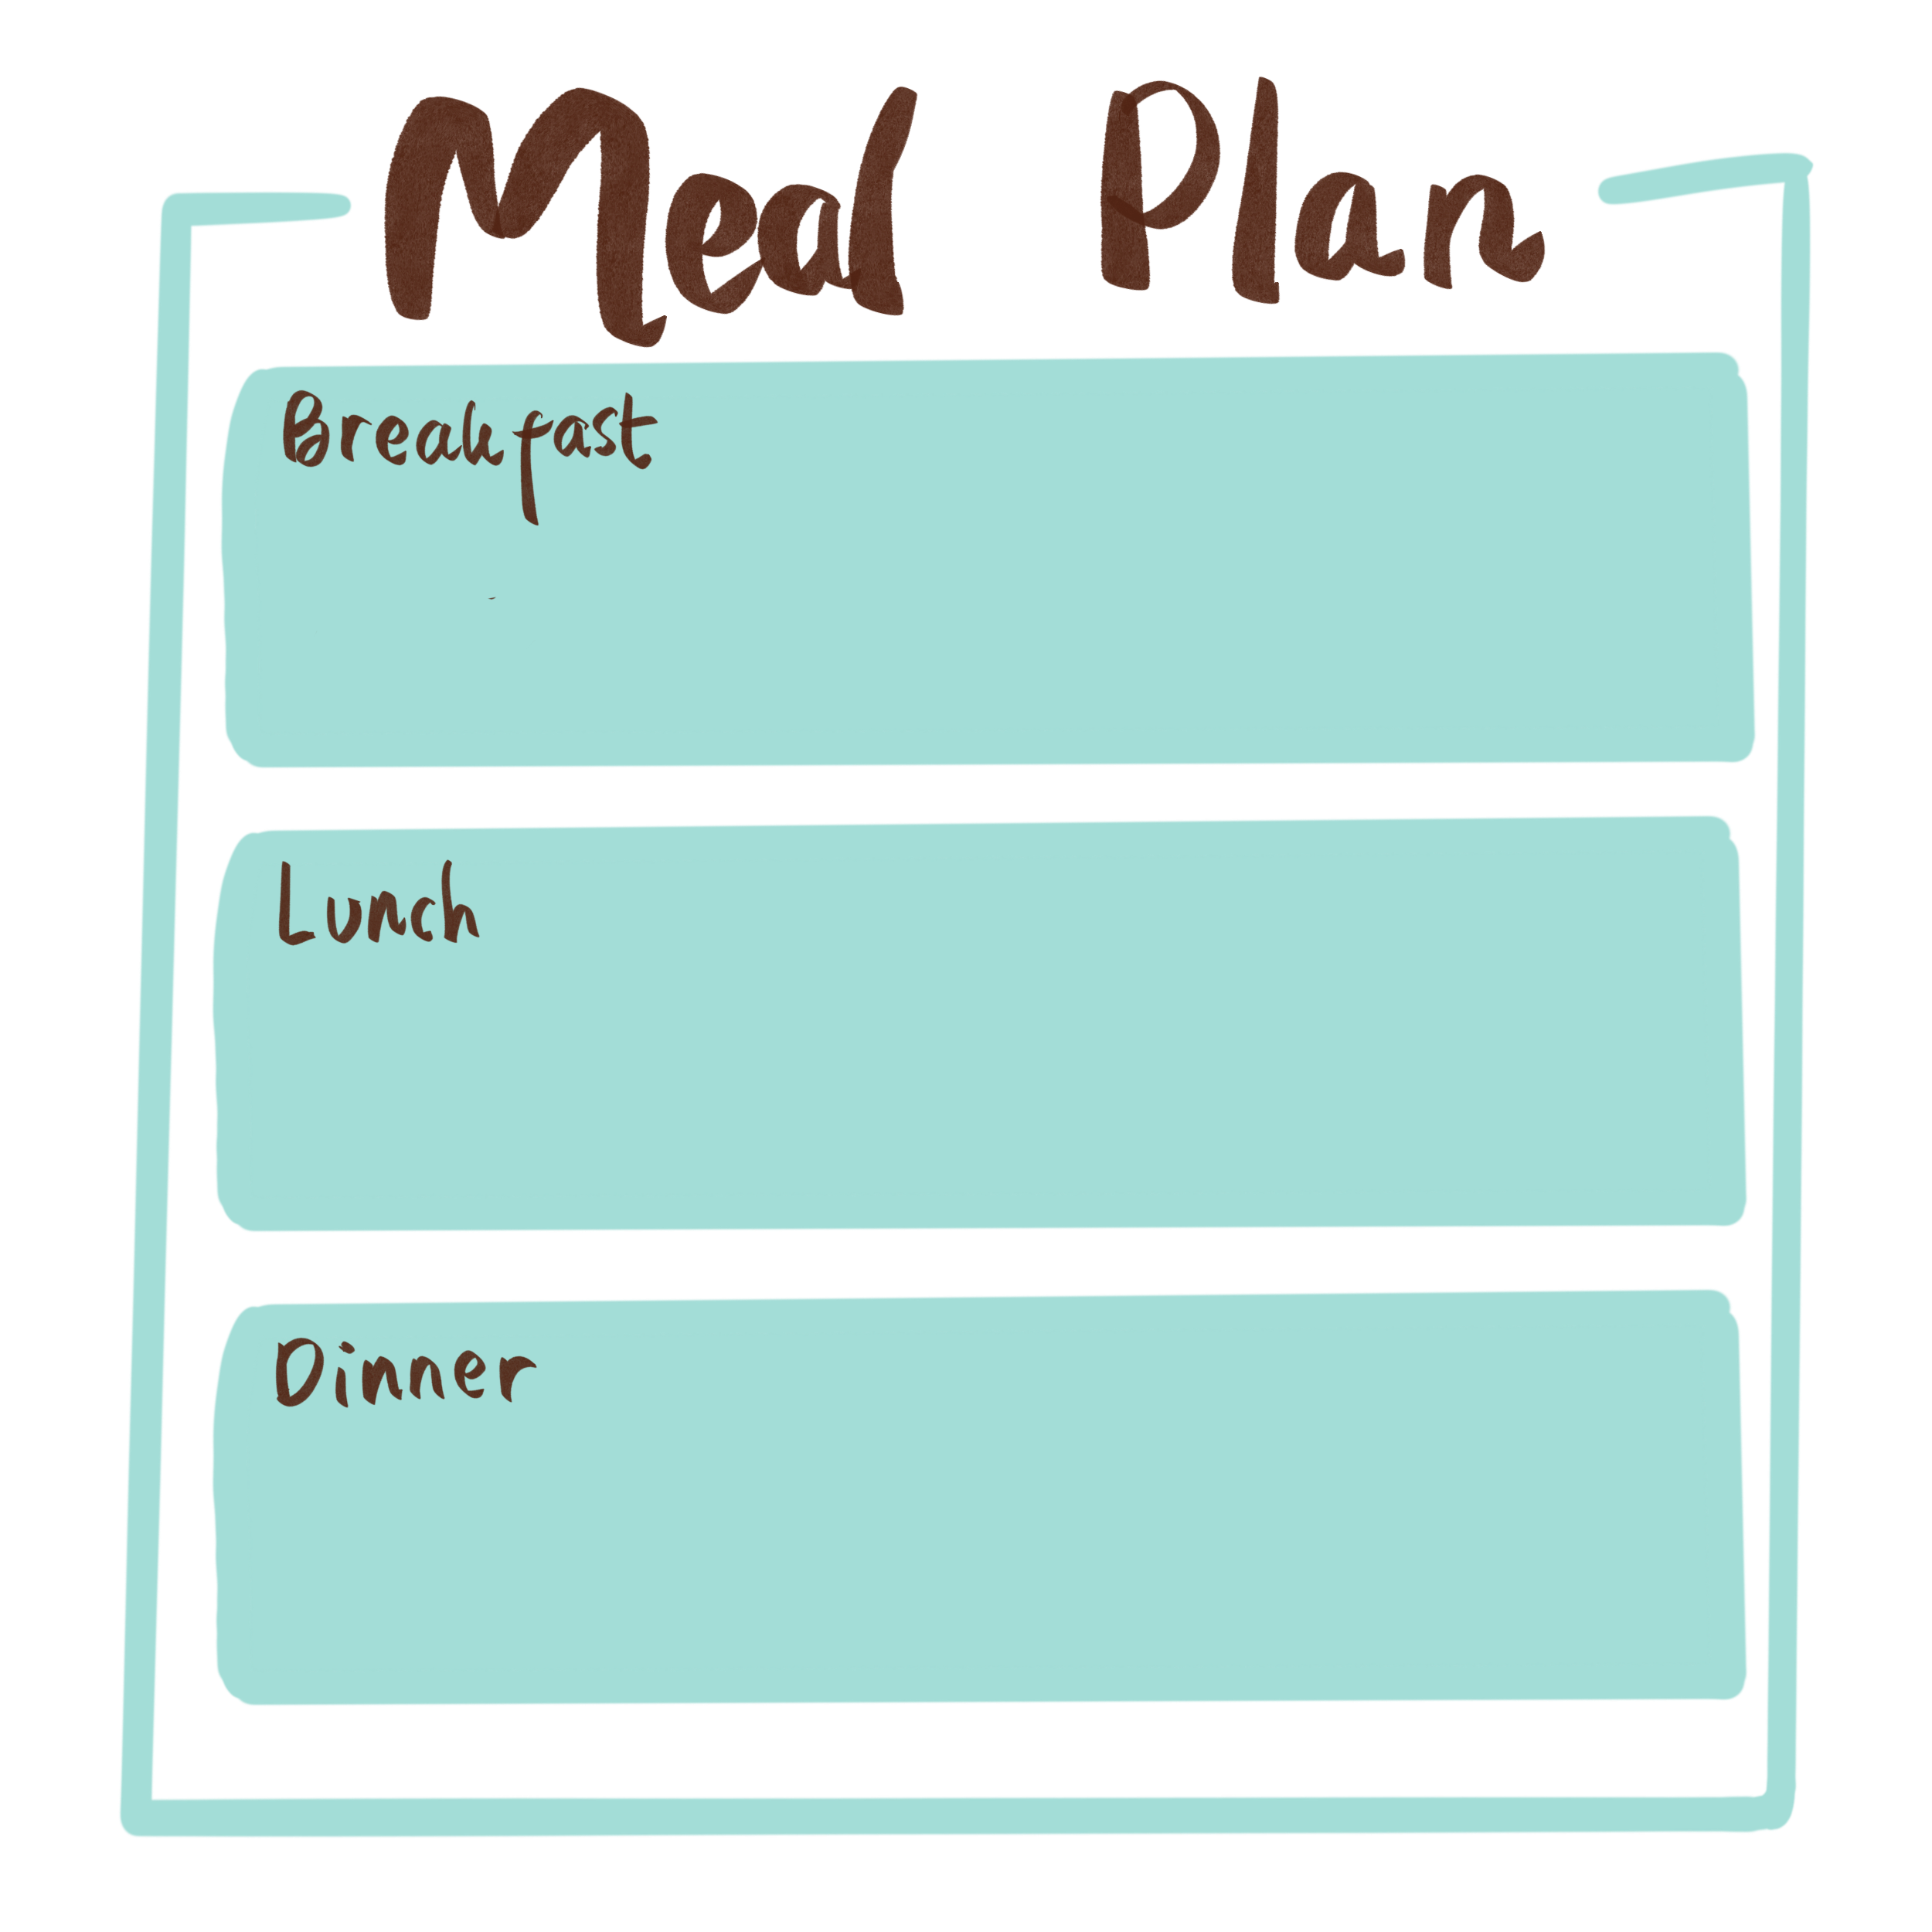 Meal Plan
Breakfast
Lunch
Dinner